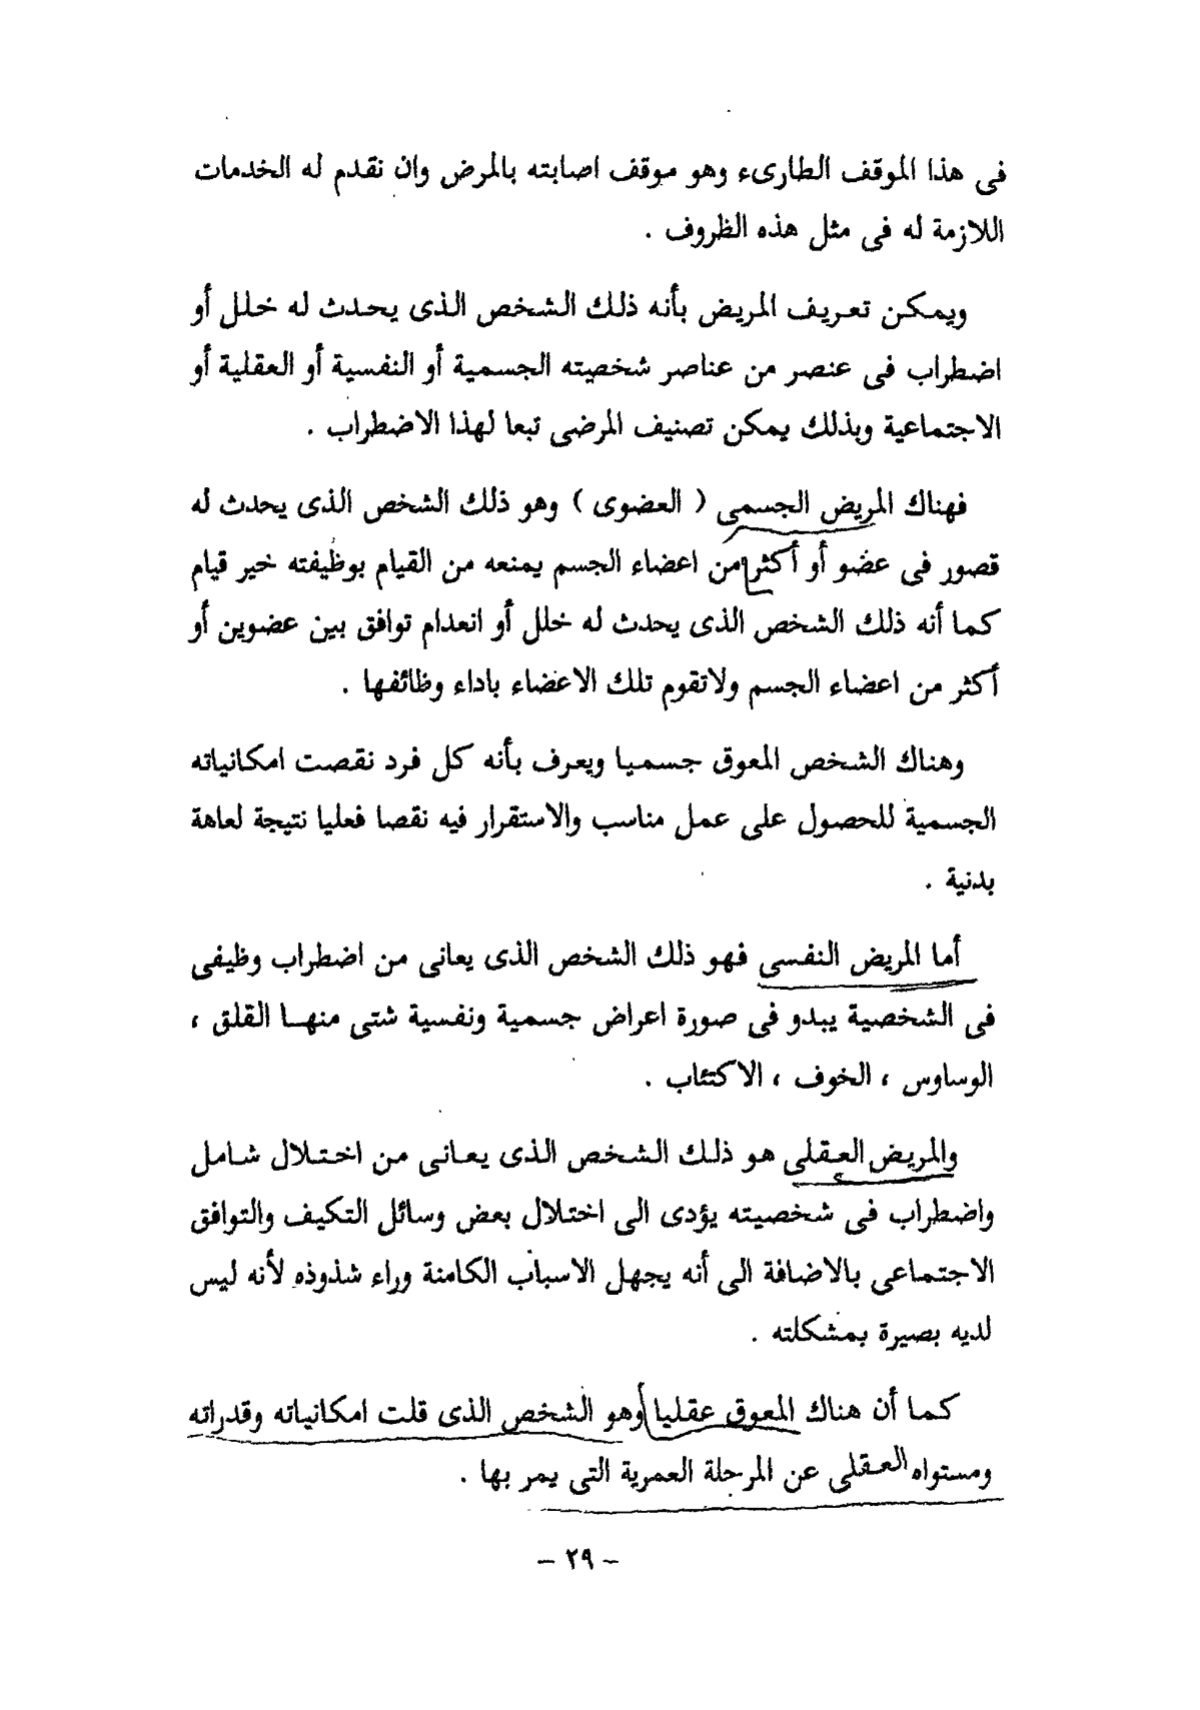 فى هذا الموقف الطارىء وهو موقف اصابته بالمرض وان نقدم له الخدمات
اللازمة له فى مثل هذه الظروف .
ويمكن تعريف المريض بأنه ذلك الشخص الذى يحدث له خلل أو
اضطراب فى عنصر من عناصر شخصيته الجسمية أو النفسية أو العقلية أو
الاجتماعية وبذلك يمكن تصنيف المرضى تبعا لهذا الاضطراب .
فهناك المريض الجسمى ( العضوى ) وهو ذلك الشخص الذى يحدث له
قصور فى عضو أو أكثر من اعضاء الجسم يمنعه من القيام بوظيفته خير قيام
كما أنه ذلك الشخص الذى يحدث له خلل أو انعدام توافق بين عضوين أو
أكثر من اعضاء الجسم ولاتقوم تلك الاعضاء باداء وظائفها .
وهناك الشخص المعوق جسميا ويعرف بأنه كل فرد نقصت امكانياته
الجسمية للحصول على عمل مناسب والاستقرار فيه نقصا فعليا نتيجة لعاهة
بدنية .
أما المريض النفسى فهو ذلك الشخص الذى يعانى من اضطراب وظيفى
فى الشخصية يبدو فى صورة اعراض جسمية ونفسية شتى منها القلق ،
الوساوس ، الخوف ، الاكتئاب .
والمريض العقلى هو ذلك الشخص الذى يعانى من اختلال شامل
واضطراب فى شخصيته يؤدى الى اختلال بعض وسائل التكيف والتوافق
الاجتماعى بالاضافة الى أنه يجهل الاسباب الكامنة وراء شذوذه لأنه ليس
لديه بصيرة بمشكلته .
كما أن هناك المعوق عقليا وهو الشخص الذى قلت امكانياته وقدراته
ومستواه العقلى عن المرحلة العمرية التى يمر بها .
- ٢٩ -